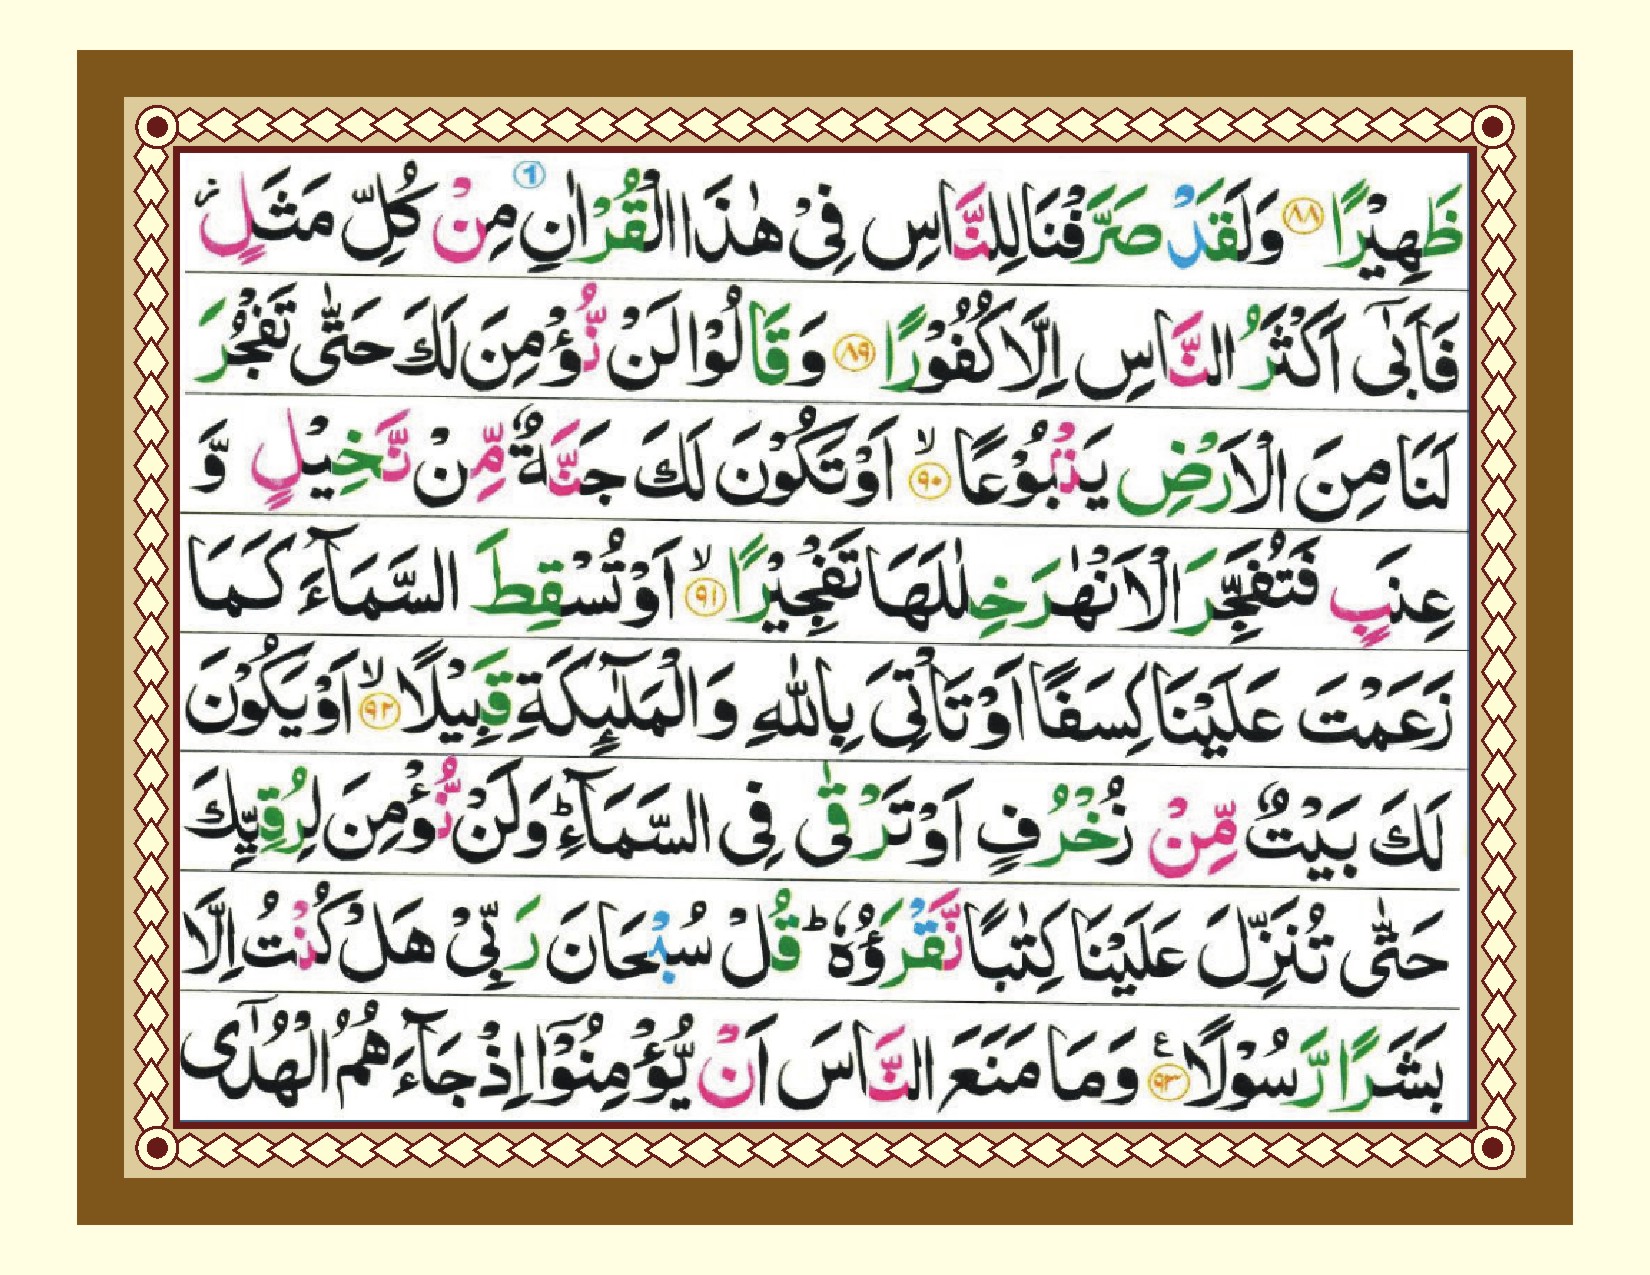 ظَهِيْرًا ﴿۸۸﴾ وَلَقَدْ صَرَّفْنَا لِلنَّاسِ فِيْ هٰذَا الْقُرْاٰنِ مِنْ كُلِّ مَثَلٍ ز
فَاَبٰٓى اَكْثَرُ النَّاسِ اِلَّا كُفُوْرًا ﴿۸۹﴾ وَقَالُوْا لَنْ نُّؤْمِنَ لَكَ حَتّٰى تَفْجُرَ
لَنَا مِنَ الْاَرْضِ يَنْۢبُوْعًا ۙ﴿۹۰﴾ اَوْ تَكُوْنَ لَكَ جَنَّةٌ مِّنْ نَّخِيْلٍ وَّ
عِنَبٍ فَتُفَجِّرَ الْاَنْهٰرَ خِلٰلَهَا تَفْجِيْرًا ۙ﴿۹۱﴾ اَوْ تُسْقِطَ السَّمَآءَ كَمَا
زَعَمْتَ عَلَيْنَا كِسَفًا اَوْ تَاْتِيَ بِاللّٰهِ وَالْمَلٰٓئِكَةِ قَبِيْلًا ۙ﴿۹۲﴾ اَوْ يَكُوْنَ
لَكَ بَيْتٌ مِّنْ زُخْرُفٍ اَوْ تَرْقٰى فِي السَّمَآءِ ؕ وَلَنْ نُّؤْمِنَ لِرُقِيِّكَ
حَتّٰى تُنَزِّلَ عَلَيْنَا كِتٰبًا نَّقْرَؤُهٗ ؕ قُلْ سُبْحَانَ رَبِّيْ هَلْ كُنْتُ اِلَّا
بَشَرًا رَّسُوْلًا ﴿۹۳﴾ ع وَمَا مَنَعَ النَّاسَ اَنْ يُّؤْمِنُوْٓا اِذْ جَآءَهُمُ الْهُدٰٓى